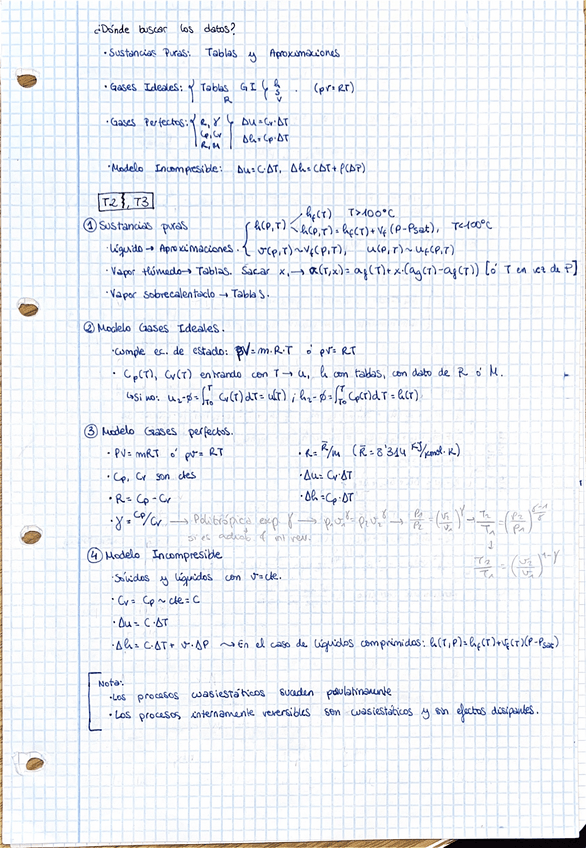 ¿Dónde buscar los datos?
· Sustancias Puras: Tablas y Aproximaciones
· Gases Ideales: { Tablas GI { h S v . (pv=RT)
R
· Gases Perfectos: { R, γ Cp, Cv R, M } Δu = Cv·ΔT
Δh = Cp·ΔT
· Modelo Incompresible: Δu = C·ΔT, Δh = CΔT +
T2, T3
① Sustancias puras
· Líquido → Aproximaciones. { h(P,T) hf(T) T>100°C
h(P,T) = hf(T) + vf (P-Psat), T<100°C
v(P,T) ~ vf(P,T), u(P,T) ~ uf(P,T)
· Vapor Húmedo → Tablas. Sacar x, → a(T,x) = af(T) + x·(ag(T) - af(T)) [ó T en vez de P]
· Vapor sobrecalentado → Tablas.
② Modelo Gases Ideales.
· Cumple ec. de estado: PV = m·R·T ó pv = RT
· Cp(T), Cv(T) entrando con T → u, h con tablas, con dato de R ó M.
↳ Si no: u2-ø = ∫T0^T Cv(T)dT = u(T) ; h2-ø = ∫T0^T Cp(T)dT = h(T)
③ Modelo Gases perfectos.
· PV = mRT ó pv = RT · R = R̄/M (R̄ = 8'314 KJ/kmol·K)
· Cp, Cv son ctes · Δu = Cv·ΔT
· R = Cp - Cv · Δh = Cp·ΔT
· γ = Cp/Cv → Politrópica exp. γ → p1v1^γ = p2v2^γ → P1/P2 = (v2/v1)^γ → T2/T1 = (P2/P1)^γ-1/γ
si es adiab. e int rev.
↓
T2/T1 = (v2/v1)^1-γ
④ Modelo Incompresible
· Sólidos y líquidos con v=cte.
· Cv = Cp ~ cte = C
· Δu = C·ΔT
· Δh = C·ΔT + v·ΔP → En el caso de líquidos comprimidos: h(T,P) = hf(T) + vf(T)(P-Psat)
Nota:
· Los procesos cuasiestáticos suceden paulatinamente
· Los procesos internamente reversibles son cuasiestáticos y sin efectos disipantes.